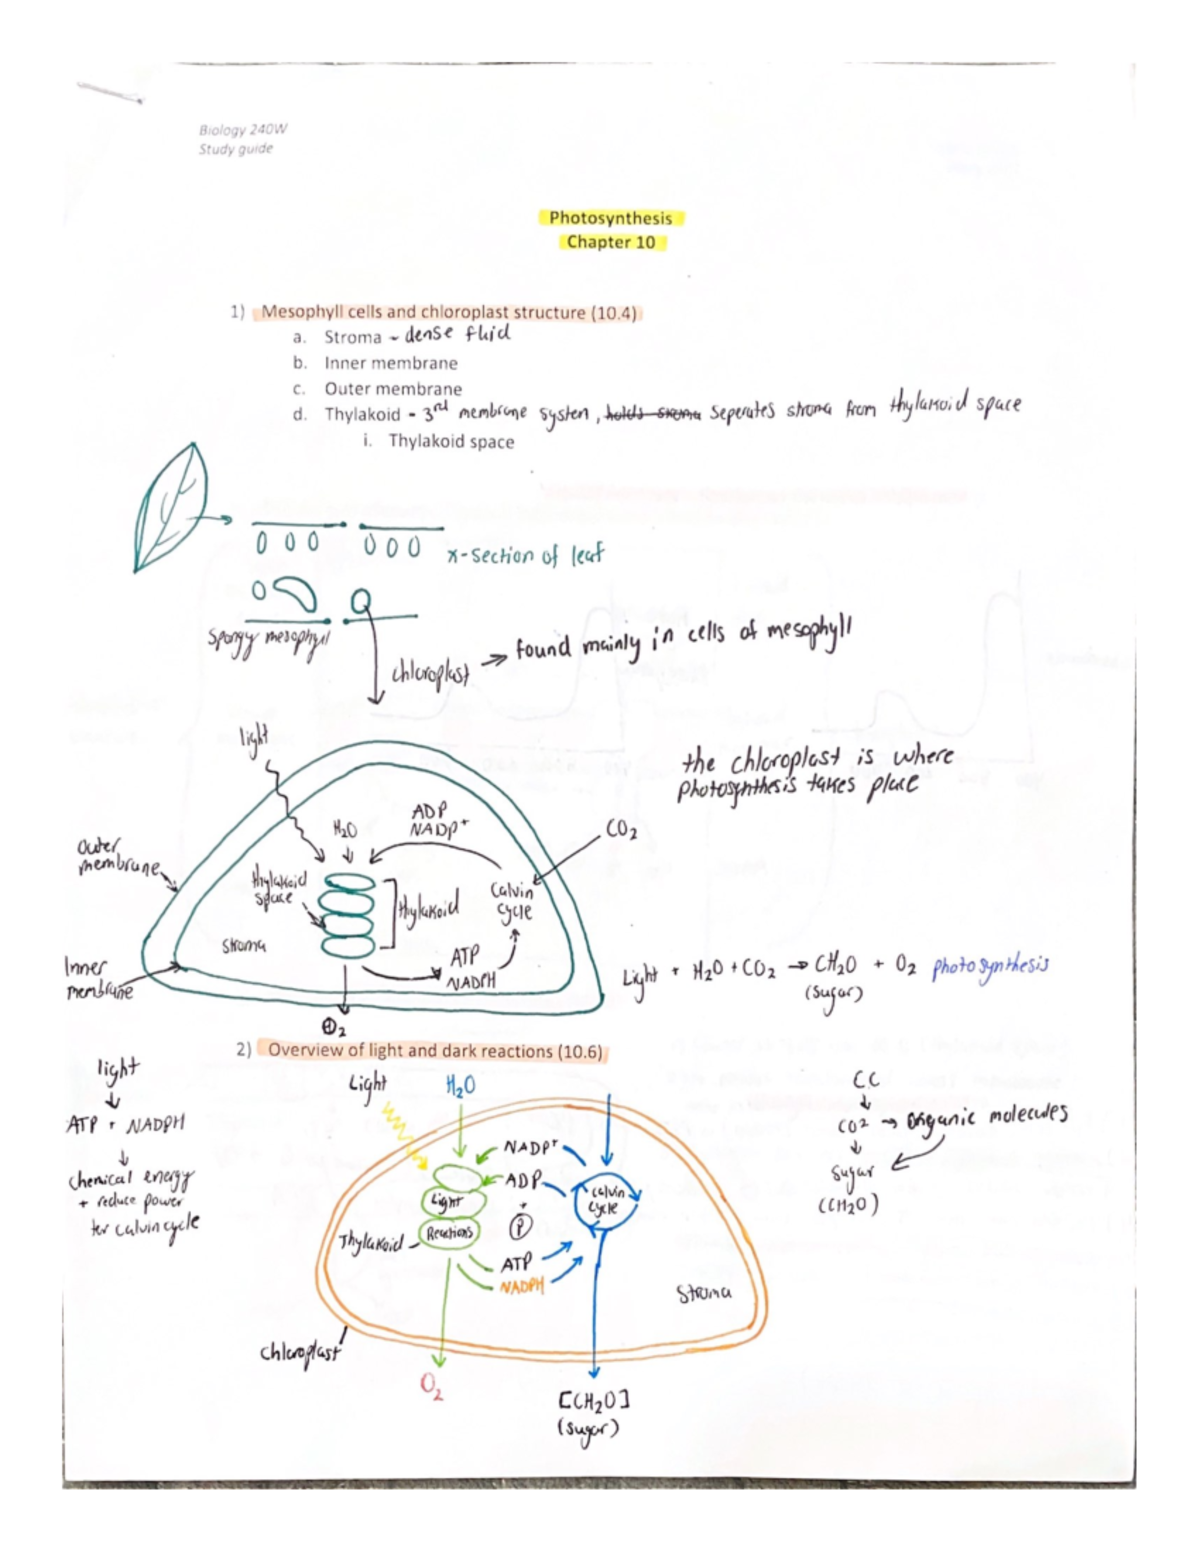 Biology 240W
Study guide
Photosynthesis
Chapter 10
1) Mesophyll cells and chloroplast structure (10.4)
a. Stroma - dense fluid
b. Inner membrane
c. Outer membrane
d. Thylakoid - 3rd membrane system, holds stroma seperates stroma from thylakoid space
i. Thylakoid space
x-section of leaf
Spongy mesophyll
chloroplast → found mainly in cells of mesophyll
light
the chloroplast is where
photosynthesis takes place
ADP
NADP+
H2O
CO2
outer
membrane
thylakoid
space
Thylakoid
Calvin
cycle
stroma
ATP
NADPH
Inner
membrane
Light + H2O + CO2 → CH2O + O2 photosynthesis
(sugar)
O2
2) Overview of light and dark reactions (10.6)
light
↓
ATP + NADPH
↓
chemical energy
+ reduce power
for calvin cycle
Light
H2O
NADP+
ADP
+
P
Light
Reactions
Calvin
cycle
Thylakoid
ATP
NADPH
Stroma
chloroplast
O2
[CH2O]
(sugar)
CC
↓
CO2 → organic molecules
↓
sugar
(CH2O)